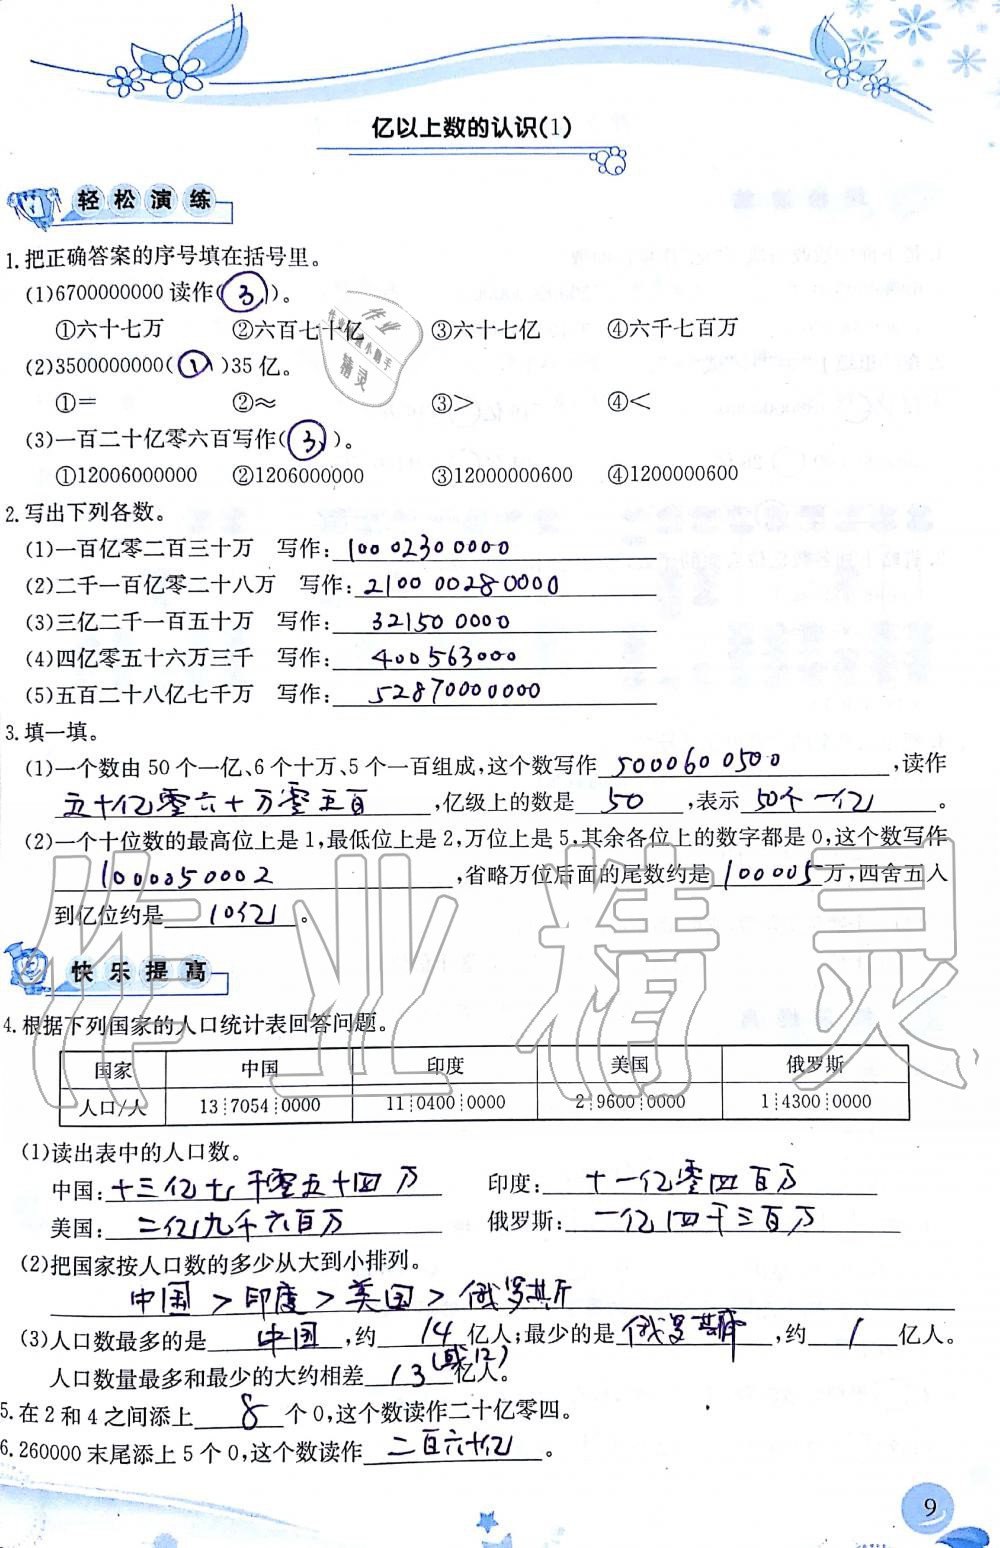 亿以上数的认识(1)
轻松演练
1.把正确答案的序号填在括号里。
(1)6700000000读作(3)。
①六十七万 ②六百七十亿 ③六十七亿 ④六千七百万
(2)3500000000(1)35亿。
①= ②≈ ③> ④<
(3)一百二十亿零六百写作(3)。
①12006000000 ②1206000000 ③12000000600 ④1200000600
2.写出下列各数。
(1)一百亿零二百三十万 写作:10002300000
(2)二千一百亿零二十八万 写作:210000280000
(3)三亿二千一百五十万 写作:321500000
(4)四亿零五十六万三千 写作:400563000
(5)五百二十八亿七千万 写作:52870000000
3.填一填。
(1)一个数由50个一亿、6个十万、5个一百组成,这个数写作5000600500,读作
五十亿零六十万零五百,亿级上的数是50,表示50个一亿。
(2)一个十位数的最高位上是1,最低位上是2,万位上是5,其余各位上的数字都是0,这个数写作
1000050002,省略万位后面的尾数约是100005万,四舍五入
到亿位约是10亿。
快乐提高
4.根据下列国家的人口统计表回答问题。
国家 中国 印度 美国 俄罗斯
人口/人 13┊7054┊0000 11┊0400┊0000 2┊9600┊0000 1┊4300┊0000
(1)读出表中的人口数。
中国:十三亿七千零五十四万 印度:十一亿零四百万
美国:二亿九千六百万 俄罗斯:一亿四千三百万
(2)把国家按人口数的多少从大到小排列。
中国>印度>美国>俄罗斯
(3)人口数最多的是中国,约14亿人;最少的是俄罗斯,约1亿人。
人口数量最多和最少的大约相差13(或12)亿人。
5.在2和4之间添上8个0,这个数读作二十亿零四。
6.260000末尾添上5个0,这个数读作二百六十亿。
9
作业精灵
作业
精灵